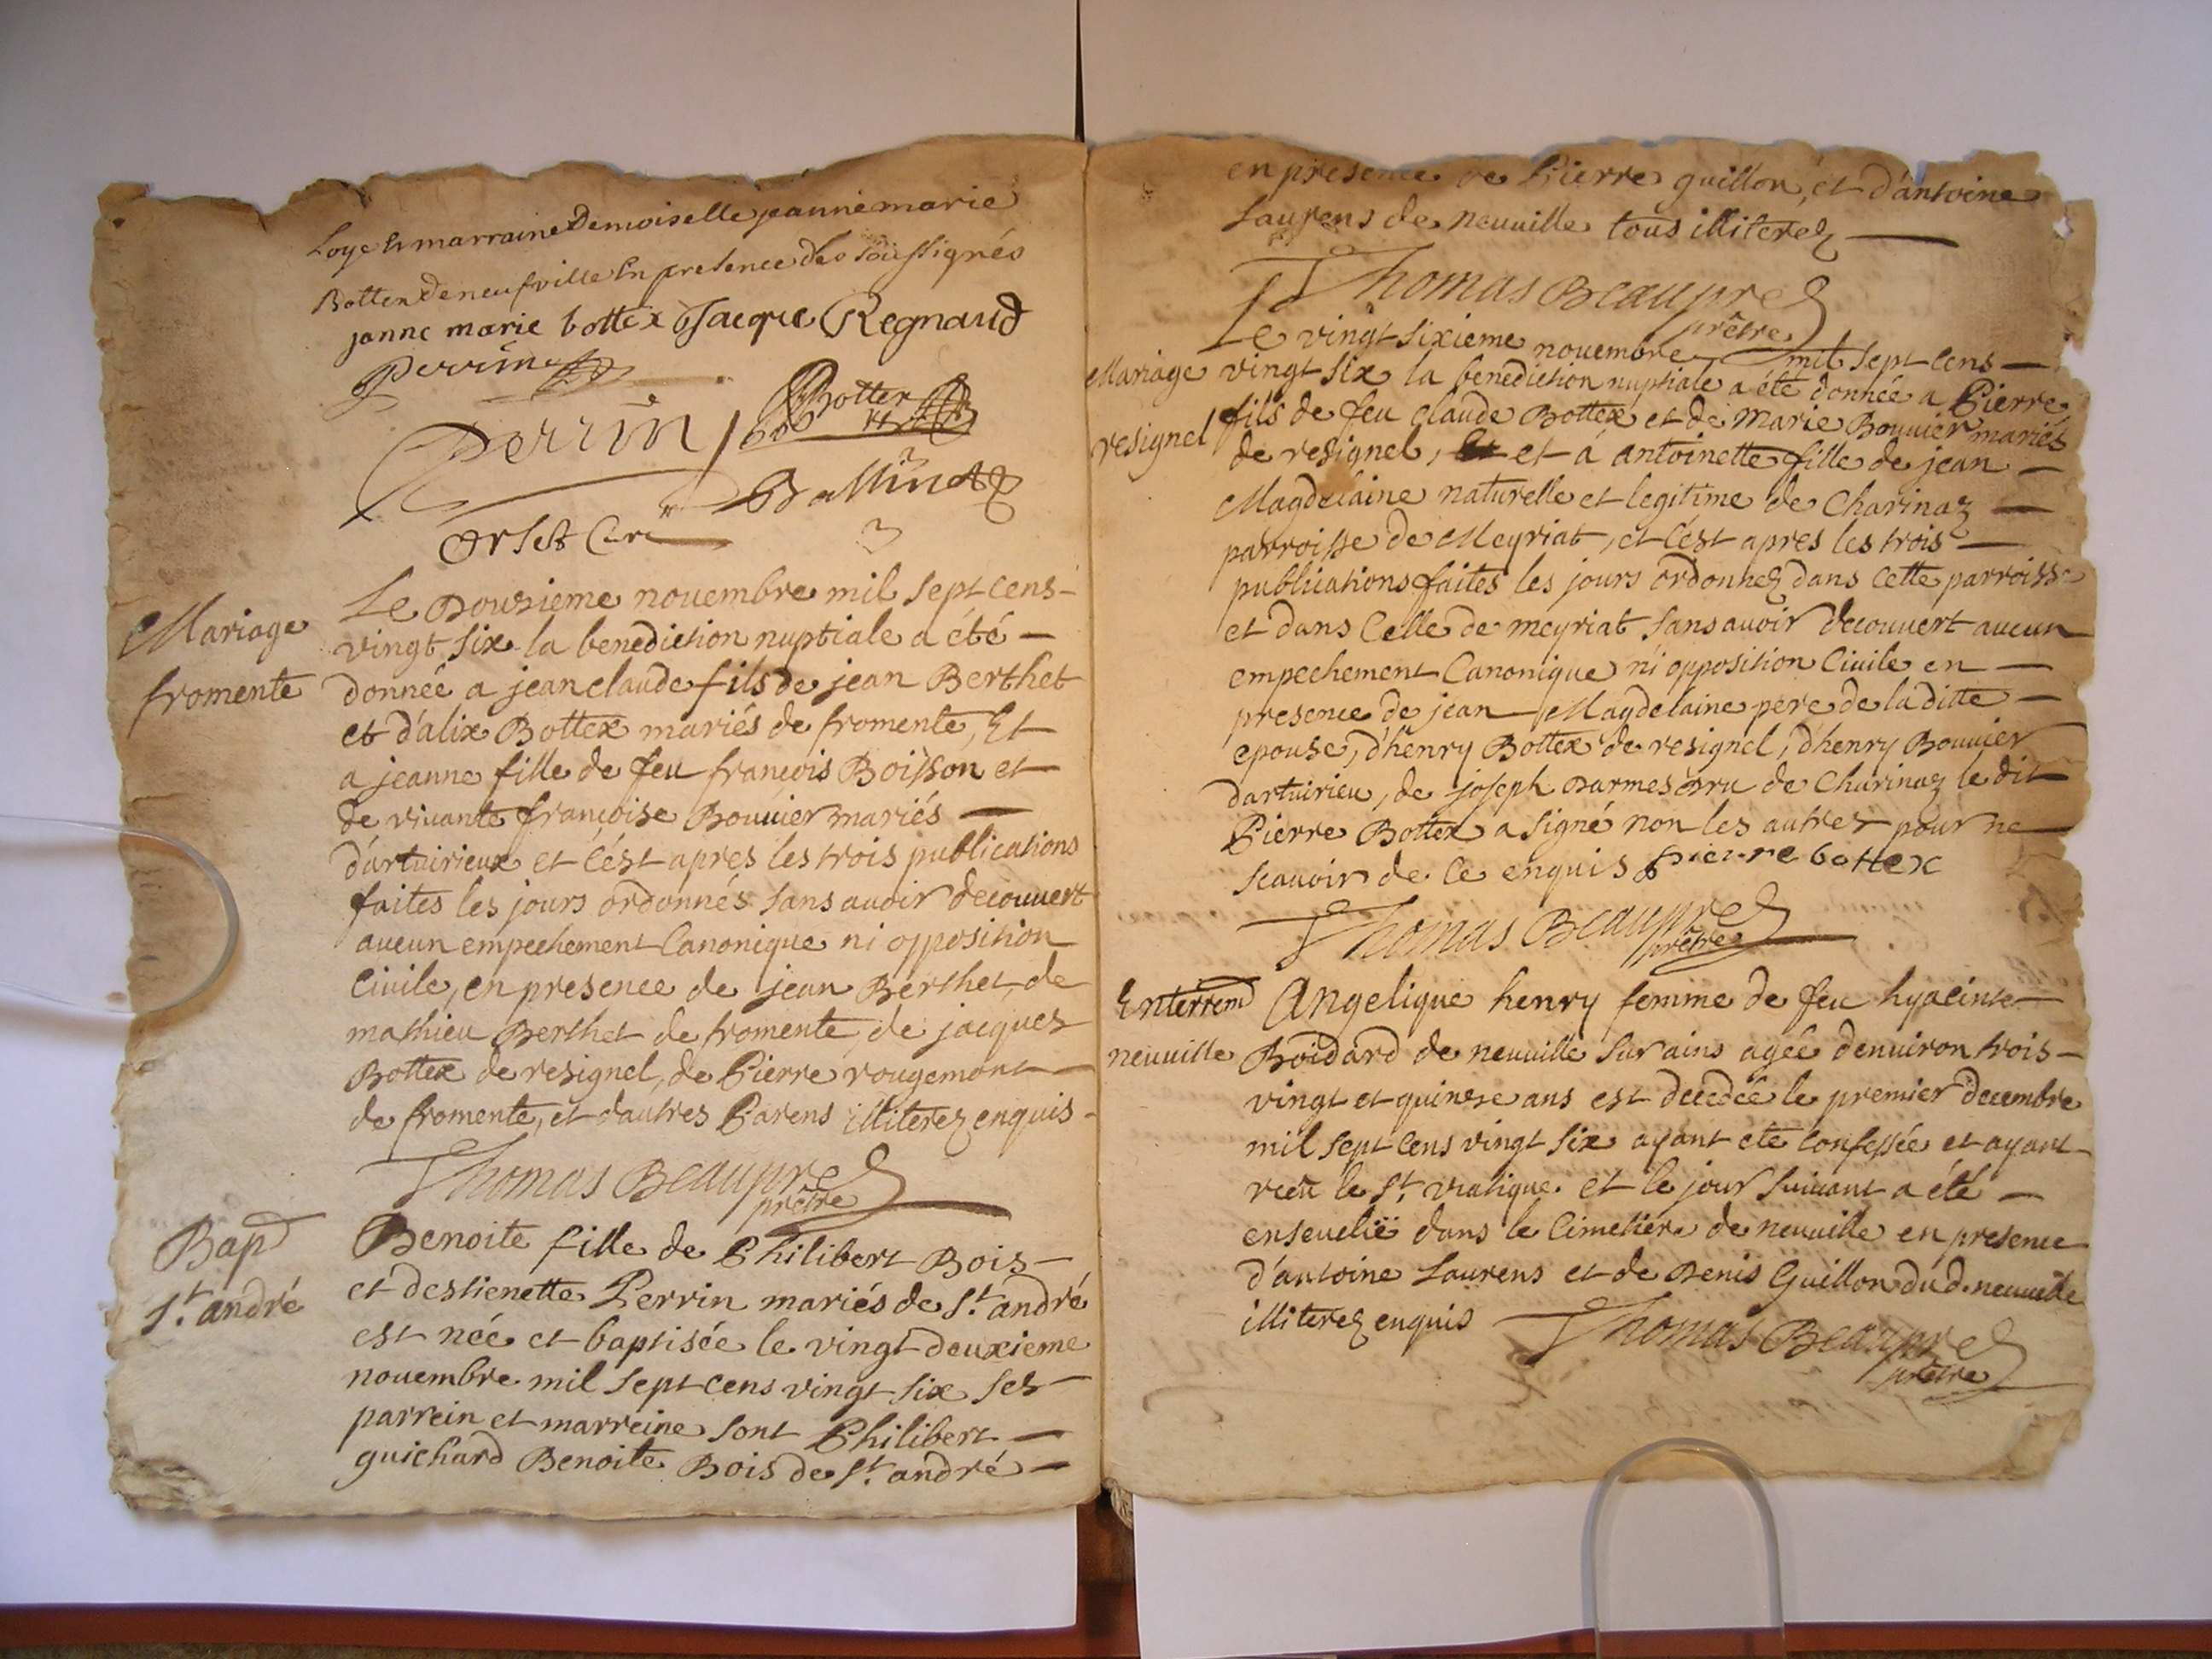 Loye Et marraine Demoiselle jeanne marie
Bottex de neufville En presence des soussignés
janne marie bottex Jacque Regnaud
Perrin
Bottex
Perrin
Ballivet
Orset Curé
Mariage
fromente
Le Douzieme nouembre mil sept cens-
vingt six la benediction nuptiale a été —
donnée a jean claude fils de jean Berthet
et d'alix Bottex mariés de fromente, Et
a jeanne fille de feu françois Boisson et
de viuante françoise Bouuier mariés —
d'artuirieux et c'est apres les trois publications
faites les jours ordonnés sans auoir decouuert
aucun empechement Canonique ni opposition
Ciuile, en presence de jean Berthet, de
mathieu Berthet de fromente, de jacques
Bottex de resignel, de Pierre rougemont —
de fromente, et d'autres Parens illiterez enquis -
Thomas Beaupre
prêtre
Bap
St. andré
Benoite fille de Philibert Bois —
et destienette Perrin mariés de St. andré
est née et baptisée le vingt deuxieme
nouembre mil sept cens vingt six ses
parrein et marreine sont Philibert —
guichard Benoite Bois de St. andré —
en presence de Pierre guillon, et d'antoine
Laurens de neuuille tous illiterez —
Thomas Beaupre
prêtre
Mariage
resignel
Le vingt sixieme nouembre mil sept cens —
vingt six la benediction nuptiale a été donnée a Pierre
fils de feu claude Bottex et de Marie Bouuier mariés
de resignel, et à antoinette fille de jean —
Magdelaine naturelle et legitime de Charinaz —
parroisse de Meyriat, et c'est apres les trois —
publications faites les jours ordonnez dans cette parroisse
et dans Celle de meyriat sans auoir decouuert aucun
empechement Canonique ni opposition Ciuile en —
presence de jean Magdelaine pere de la ditte —
epouse, d'henry Bottex de resignel, d'henry Bouuier
dartuirieu, de joseph Darmes de Charinaz le dit
Pierre Bottex a signé non les autres pour ne
scauoir de ce enquis pierre bottex
Thomas Beaupre
prêtre
Enterrem
neuuille
Angelique henry femme de feu hyacinte —
Boidard de neuuille sur ains agée denuiron trois -
vingt et quinze ans est decedée le premier decembre
mil sept cens vingt six ayant eté confessée et ayant
recu le St. viatique. et le jour suiuant a été —
enseuelië dans le Cimetiere de neuuille en presence
d'antoine Laurens et de Denis Guillon dud. neuuille
illiterez enquis
Thomas Beaupre
prêtre